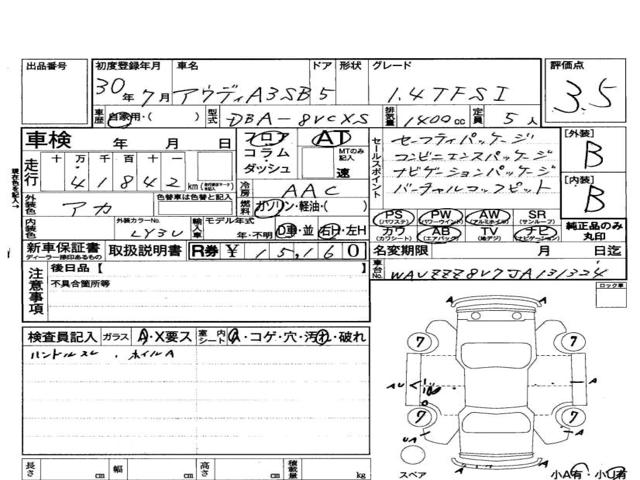 出品番号 初度登録年月 車名 ドア 形状 グレード 評価点
30年 7月 アウディA3SB 5 1.4TFSI 3.5
車歴 自家用・( ) 型式 DBA-8VCXS 排気量 1400cc 定員 5人
車検 年 月 日 フロア コラム・ダッシュ AT MTのみ記入 速
走行 十万千百十一 41842 km
セールスポイント
セーフティパッケージ
コンビニエンスパッケージ
ナビゲーションパッケージ
バーチャルコックピット
[外装] B
[内装] B
冷房 AAC
燃料 ガソリン・軽油・( )
外装色 アカ 色替車は色替と記入
内装色 外装カラーNo. LY3U 輸入車 モデル年式 年・不明 D車・並 右H・左H
PS (パワステ) PW (パワーウインド) AW (アルミホイル) SR (サンルーフ)
カワ (カワシート) AB (エアバック) TV (地デジ) ナビ (ナビゲーション)
純正品のみ丸印
新車保証書 ディーラー捺印あるもの 取扱説明書 R券 ¥15,160 名変期限 月 日迄
車台No. WAUZZZ8V7JA131324
注意事項 後日品 [ ]
不具合箇所等
ロック車
検査員記入 ガラス A・X要ス 室内シート A・コゲ・穴・汚れ・破れ
ハンドルスレ . ホイルA
A
7 7
AU A
7 7
UA
スペア A
長さ cm 幅 cm 高さ cm 積載量 kg
小A有・小U有